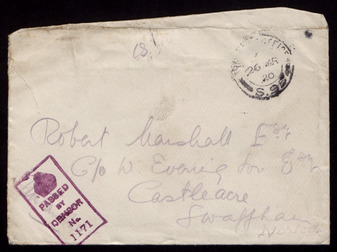 (8.)
OFFICE
26 MR
20
S.96
Robert Marshall Esq
C/o W. Evering Son Esq
Castleacre
Swaffham
Norfolk
PASSED
BY
CENSOR
No.
1171